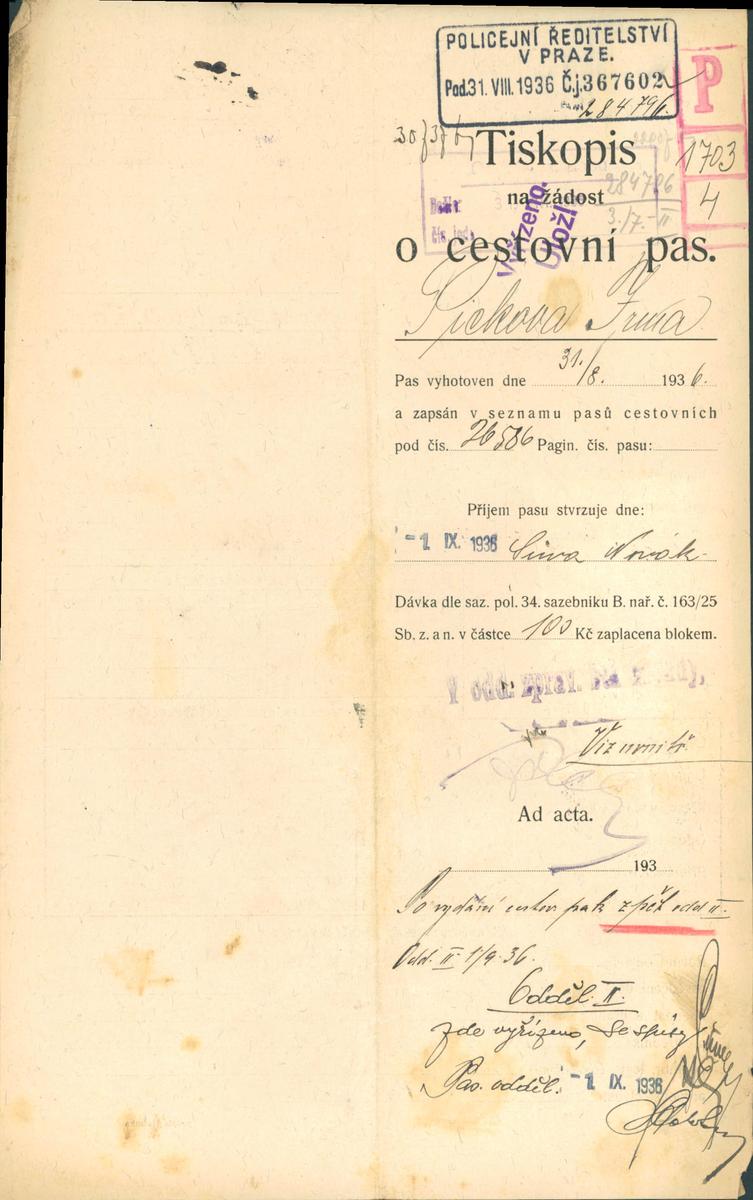 POLICEJNÍ ŘEDITELSTVÍ
V PRAZE.
Pod. 31. VIII. 1936 Č.j. 367602
284796.
P
1703
4
Tiskopis
284796
3./7.-II
na žádost
Vyřízeno.
Uloží
o cestovní pas.
Pickova Irma
Pas vyhotoven dne 31./8. 1936.
a zapsán v seznamu pasů cestovních
pod čís. 26586 Pagin. čís. pasu:
Příjem pasu stvrzuje dne:
- 1. IX. 1936 Novák
Dávka dle saz. pol. 34. sazebníku B. nař. č. 163/25
Sb. z. a n. v částce 100 Kč zaplacena blokem.
V odd. zprav.
Viz uvnitř
Ad acta.
193
Po vydání cestov. pak zpět odd II.
Odd. II 1/9 36.
Odděl. II.
zde vyřízeno, se spisy
Pas. odděl. - 1. IX. 1936